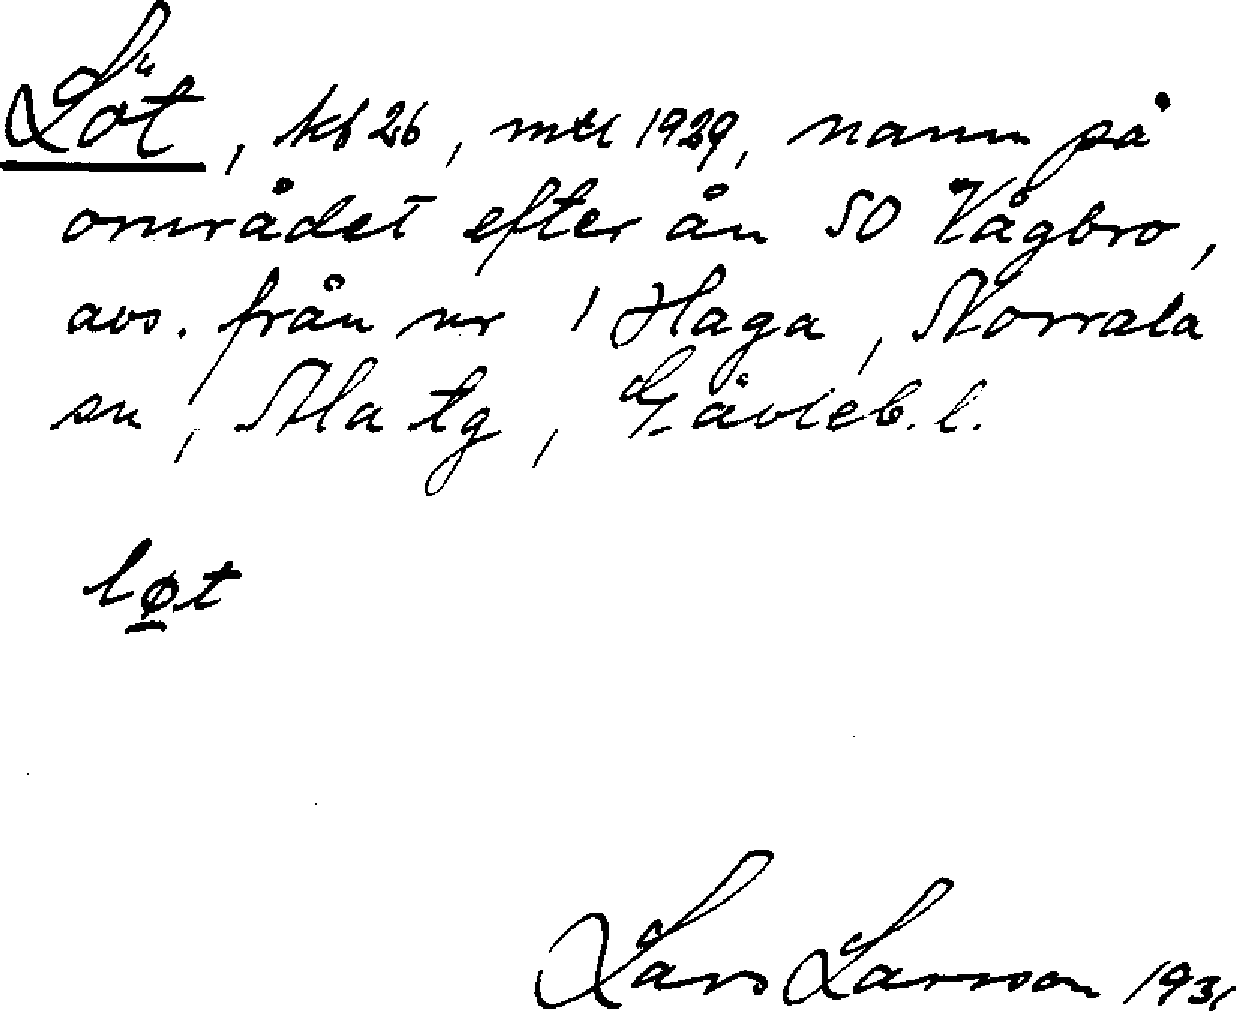 Löt, kb 26, mtl 1929, namn på
området efter ån SO Vågbro,
avs. från nr 1 Haga, Norrala
sn, Ala tg, Gävleb. l.
løt
Lars Larsson 1931